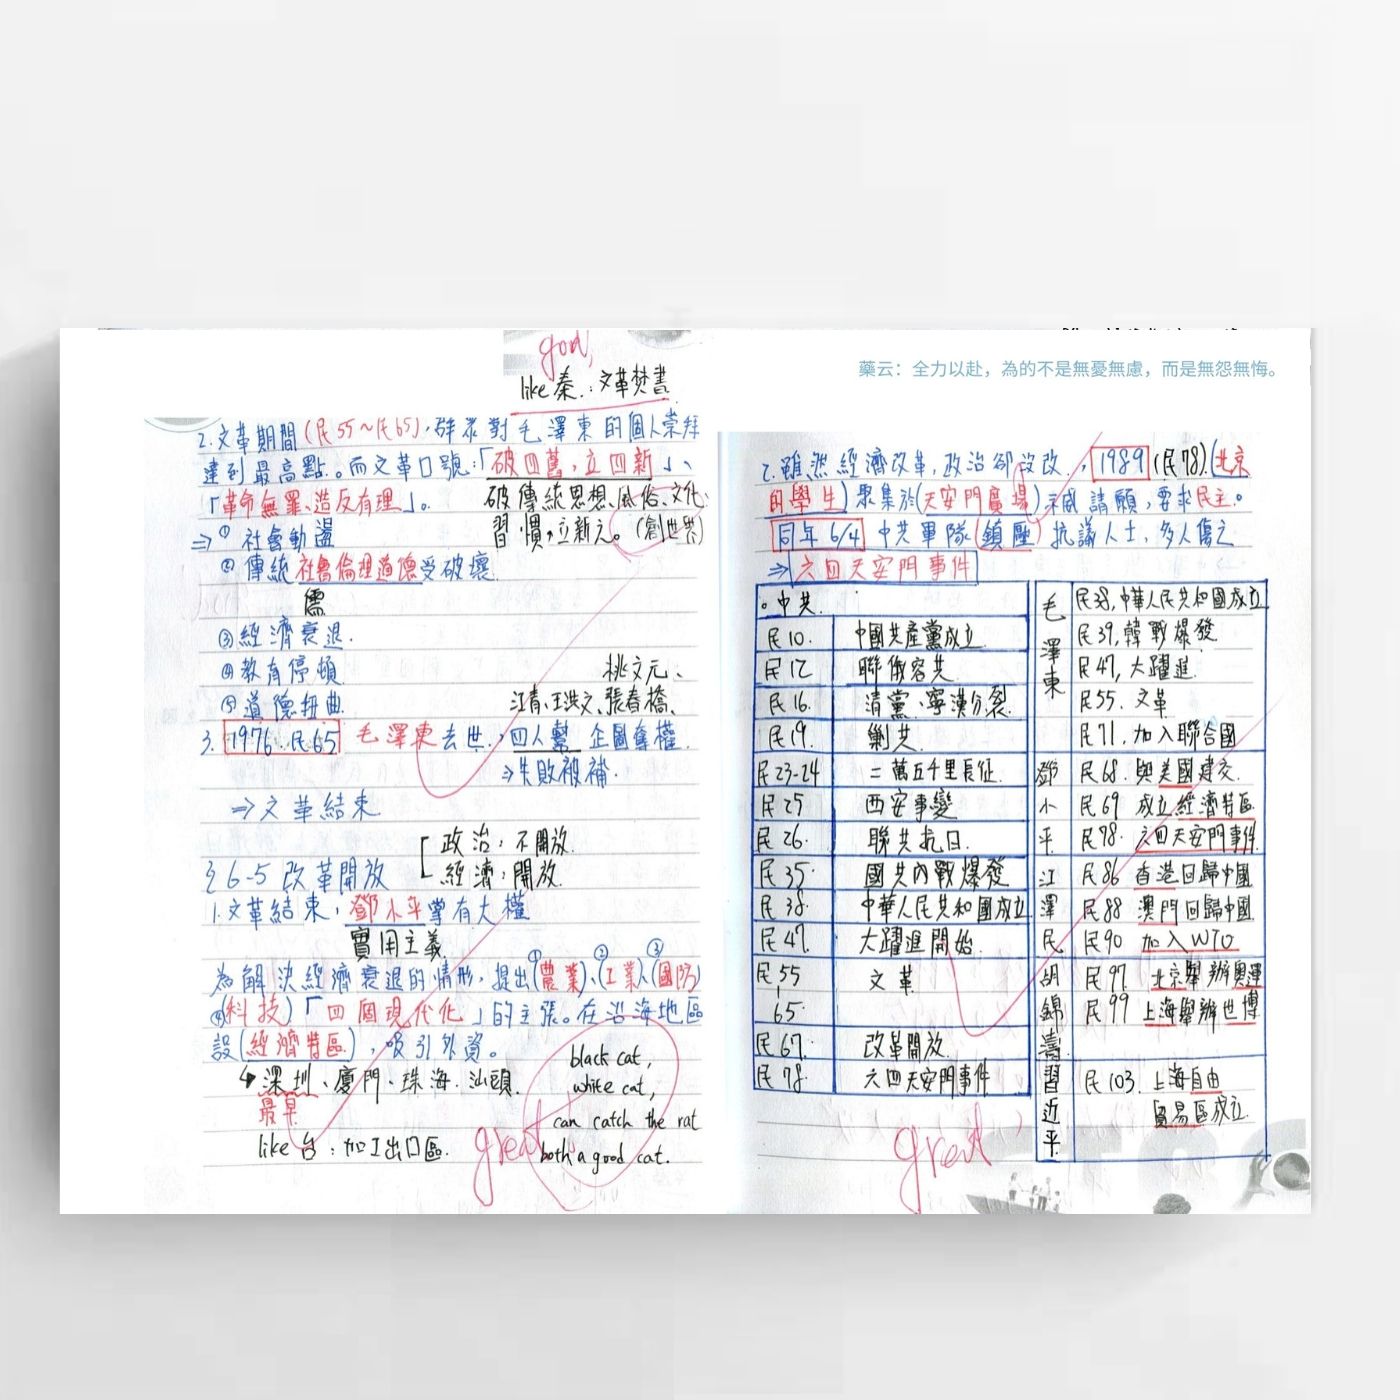 good,
like 秦.:文革焚書
2.文革期間(民55~民65),群眾對毛澤東的個人崇拜
達到最高點。而文革口號:「破四舊,立四新」、
「革命無罪、造反有理」。
破傳統思想、風俗、文化、
習慣,立新元。(創世界)
⇒①社會動盪
②傳統社會倫理道德受破壞
儒
③經濟衰退.
④教育停頓
⑤道德扭曲.
桃文元、
江青、王洪文、張春橋、
3. 1976.民65 毛澤東去世,四人幫 企圖奪權.
⇒失敗被補.
⇒文革結束.
政治:不開放.
經濟:開放.
§6-5 改革開放
1.文革結束,鄧小平掌有大權
實用主義
為解決經濟衰退的情形,提出①(農業)、②(工業)、③(國防)
④(科技)「四個現代化」的主張。在沿海地區
設(經濟特區),吸引外資。
↳深圳、廈門、珠海.汕頭.
最早
like 台:加工出口區.
black cat,
white cat,
can catch the rat
both a good cat.
great
藥云：全力以赴，為的不是無憂無慮，而是無怨無悔。
2.雖然經濟改革,政治卻沒改.,1989(民78).(北京
的學生)聚集於(天安門廣場)示威請願,要求民主。
同年6/4 中共軍隊(鎮壓)抗議人士,多人傷亡
⇒六四天安門事件
。中共.
民10. 中國共產黨成立
民12 聯俄容共.
民16. 清黨、寧漢分裂.
民19. 剿共.
民23-24 二萬五千里長征.
民25 西安事變
民26. 聯共抗日.
民35. 國共內戰爆發
民38. 中華人民共和國成立
民47. 大躍進開始.
民55
|
65. 文革.
民67. 改革開放.
民78. 六四天安門事件
毛澤東
民38,中華人民共和國成立
民39,韓戰爆發.
民47,大躍進.
民55. 文革
民71,加入聯合國
鄧小平
民68. 與美國建交.
民69 成立經濟特區.
民78. 六四天安門事件.
江澤民
民86 香港回歸中國
民88 澳門回歸中國.
民90 加入WTO
胡錦濤
民97. 北京舉辦奧運
民99 上海舉辦世博
習近平
民103. 上海自由
貿易區成立.
great